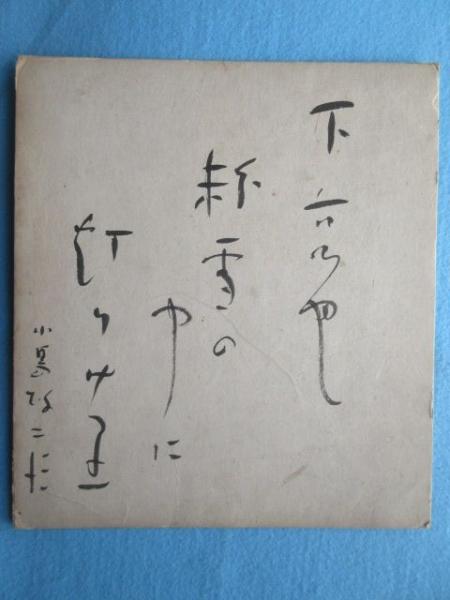 下京や
粉雪の
中に
りけ里
小島政二郎